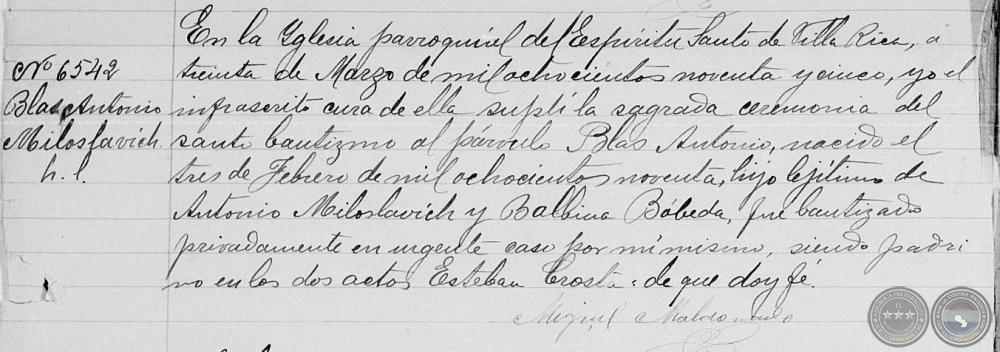 En la Yglesia parroquial del Espíritu Santo de Villa Rica, á
Nº 6542
treinta de Marzo de mil ochocientos noventa y cinco, yo el
Blas Antonio
infrascrito cura de ella suplí la sagrada ceremonia del
Miloslavich
santo bautizmo al párvulo Blas Antonio, nacido el
h. l.
tres de Febrero de mil ochocientos noventa, hijo lejítimo de
Antonio Miloslavich y Balbina Bóbeda, fue bautizado
privadamente en urgente caso por mí mismo, siendo padri
no en los dos actos Esteban Crosta: de que doy fé.
Miguel Maldonado